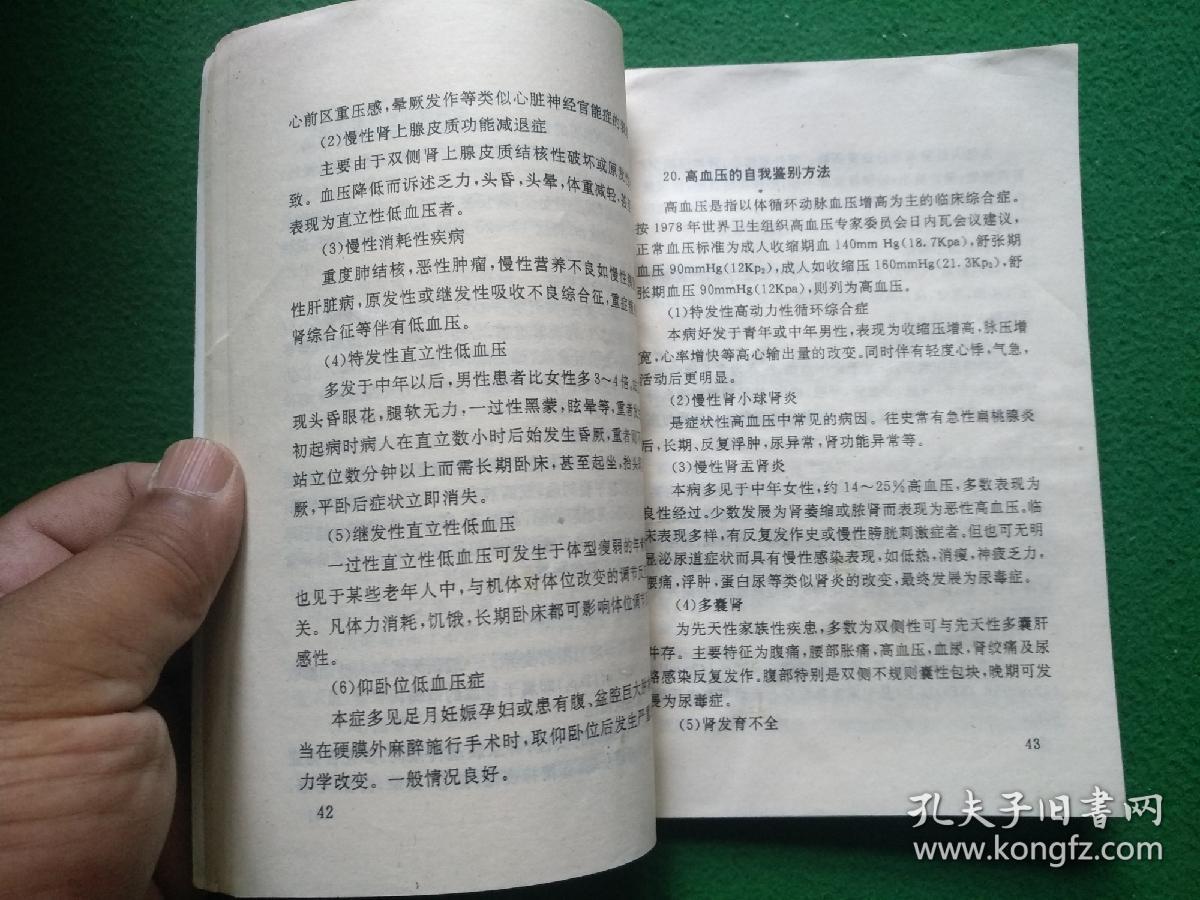 心前区重压感,晕厥发作等类似心脏神经官能症的
(2)慢性肾上腺皮质功能减退症
主要由于双侧肾上腺皮质结核性破坏或原发性
致。血压降低而诉述乏力,头昏,头晕,体重减轻,
表现为直立性低血压者。
(3)慢性消耗性疾病
重度肺结核,恶性肿瘤,慢性营养不良如慢性
性肝脏病,原发性或继发性吸收不良综合征,重症
肾综合征等伴有低血压。
(4)特发性直立性低血压
多发于中年以后,男性患者比女性多3~4倍,
现头昏眼花,腿软无力,一过性黑蒙,眩晕等,重者
初起病时病人在直立数小时后始发生昏厥,重者
站立位数分钟以上而需长期卧床,甚至起坐,抬头
厥,平卧后症状立即消失。
(5)继发性直立性低血压
一过性直立性低血压可发生于体型瘦弱的年
也见于某些老年人中,与机体对体位改变的调节反
关。凡体力消耗,饥饿,长期卧床都可影响体位调节
感性。
(6)仰卧位低血压症
本症多见足月妊娠孕妇或患有腹、盆腔巨大
当在硬膜外麻醉施行手术时,取仰卧位后发生严重
力学改变。一般情况良好。
42
20.高血压的自我鉴别方法
高血压是指以体循环动脉血压增高为主的临床综合症。
按1978年世界卫生组织高血压专家委员会日内瓦会议建议,
正常血压标准为成人收缩期血140mm Hg(18.7Kpa),舒张期
血压90mmHg(12Kp₂),成人如收缩压160mmHg(21.3Kp₂),舒
张长期血压90mmHg(12Kpa),则列为高血压。
(1)特发性高动力性循环综合症
本病好发于青年或中年男性,表现为收缩压增高,脉压增
宽,心率增快等高心输出量的改变。同时伴有轻度心悸,气急,
活动后更明显。
(2)慢性肾小球肾炎
是症状性高血压中常见的病因。往史常有急性扁桃腺炎
后,长期、反复浮肿,尿异常,肾功能异常等。
(3)慢性肾盂肾炎
本病多见于中年女性,约14~25%高血压,多数表现为
良性经过。少数发展为肾萎缩或脓肾而表现为恶性高血压。临
床表现多样,有反复发作史或慢性膀胱刺激症者。但也可无明
显泌尿道症状而具有慢性感染表现,如低热,消瘦,神疲乏力,
腰痛,浮肿,蛋白尿等类似肾炎的改变,最终发展为尿毒症。
(4)多囊肾
为先天性家族性疾患,多数为双侧性可与先天性多囊肝
并存。主要特征为腹痛,腰部胀痛,高血压,血尿,肾绞痛及尿
路感染反复发作。腹部特别是双侧不规则囊性包块,晚期可发
展为尿毒症。
(5)肾发育不全
43
孔夫子旧書网
www.kongfz.com